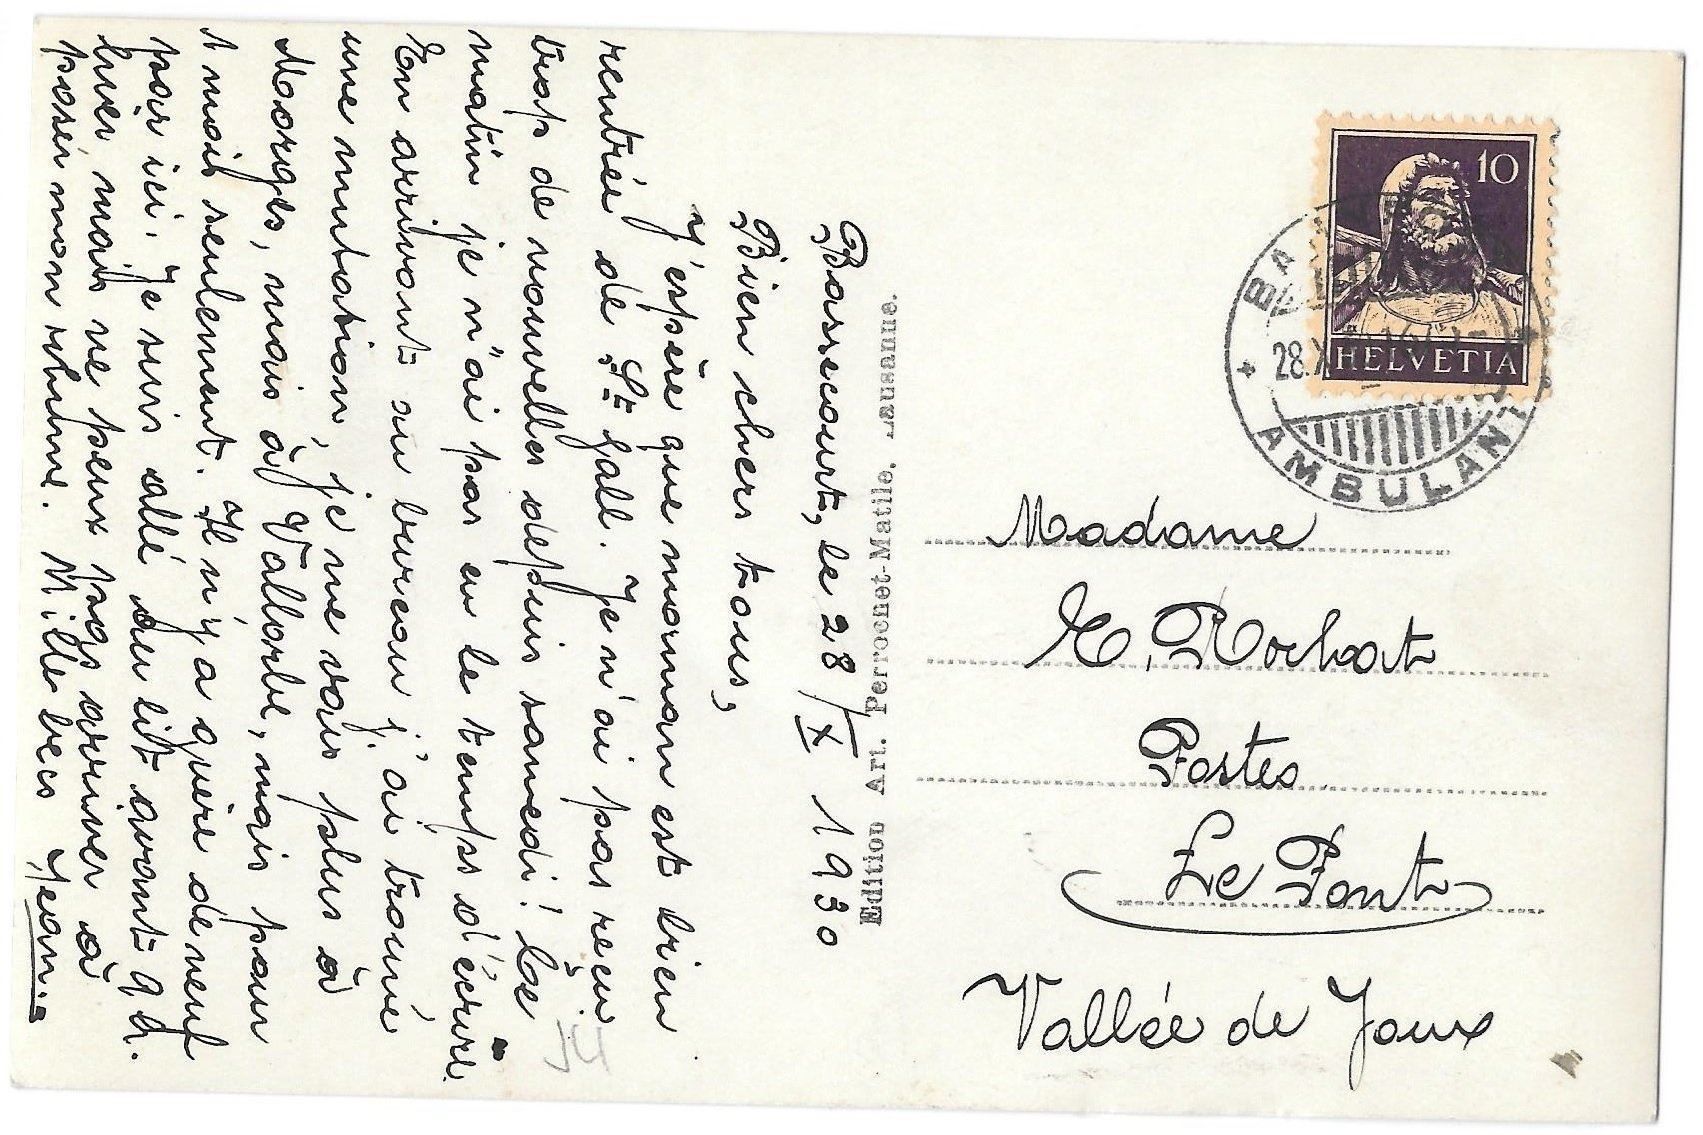 Bassecourt, le 28/X 1930
Bien chers tous,
J'espère que maman est bien
rentrée de St Gall. Je n'ai pas reçu
trop de nouvelles depuis samedi! Ce
matin je n'ai pas eu le temps d'écrire.
En arrivant au bureau j'ai trouvé
une mutation, je ne vais plus à
Morges, mais à Vallorbe, mais pour
1 mois seulement. Il n'y a guère de neuf
par ici. Je suis allé au lit avant 9 h.
hier, mais ne peux pas arriver à
poser mon rhume. Mille becs Jean.
Edition Art. Perrochet-Matile, Lausanne.
10
HELVETIA
28.X
AMBULANT
Madame
E. Rochat
Postes
Le Pont
Vallée de Joux